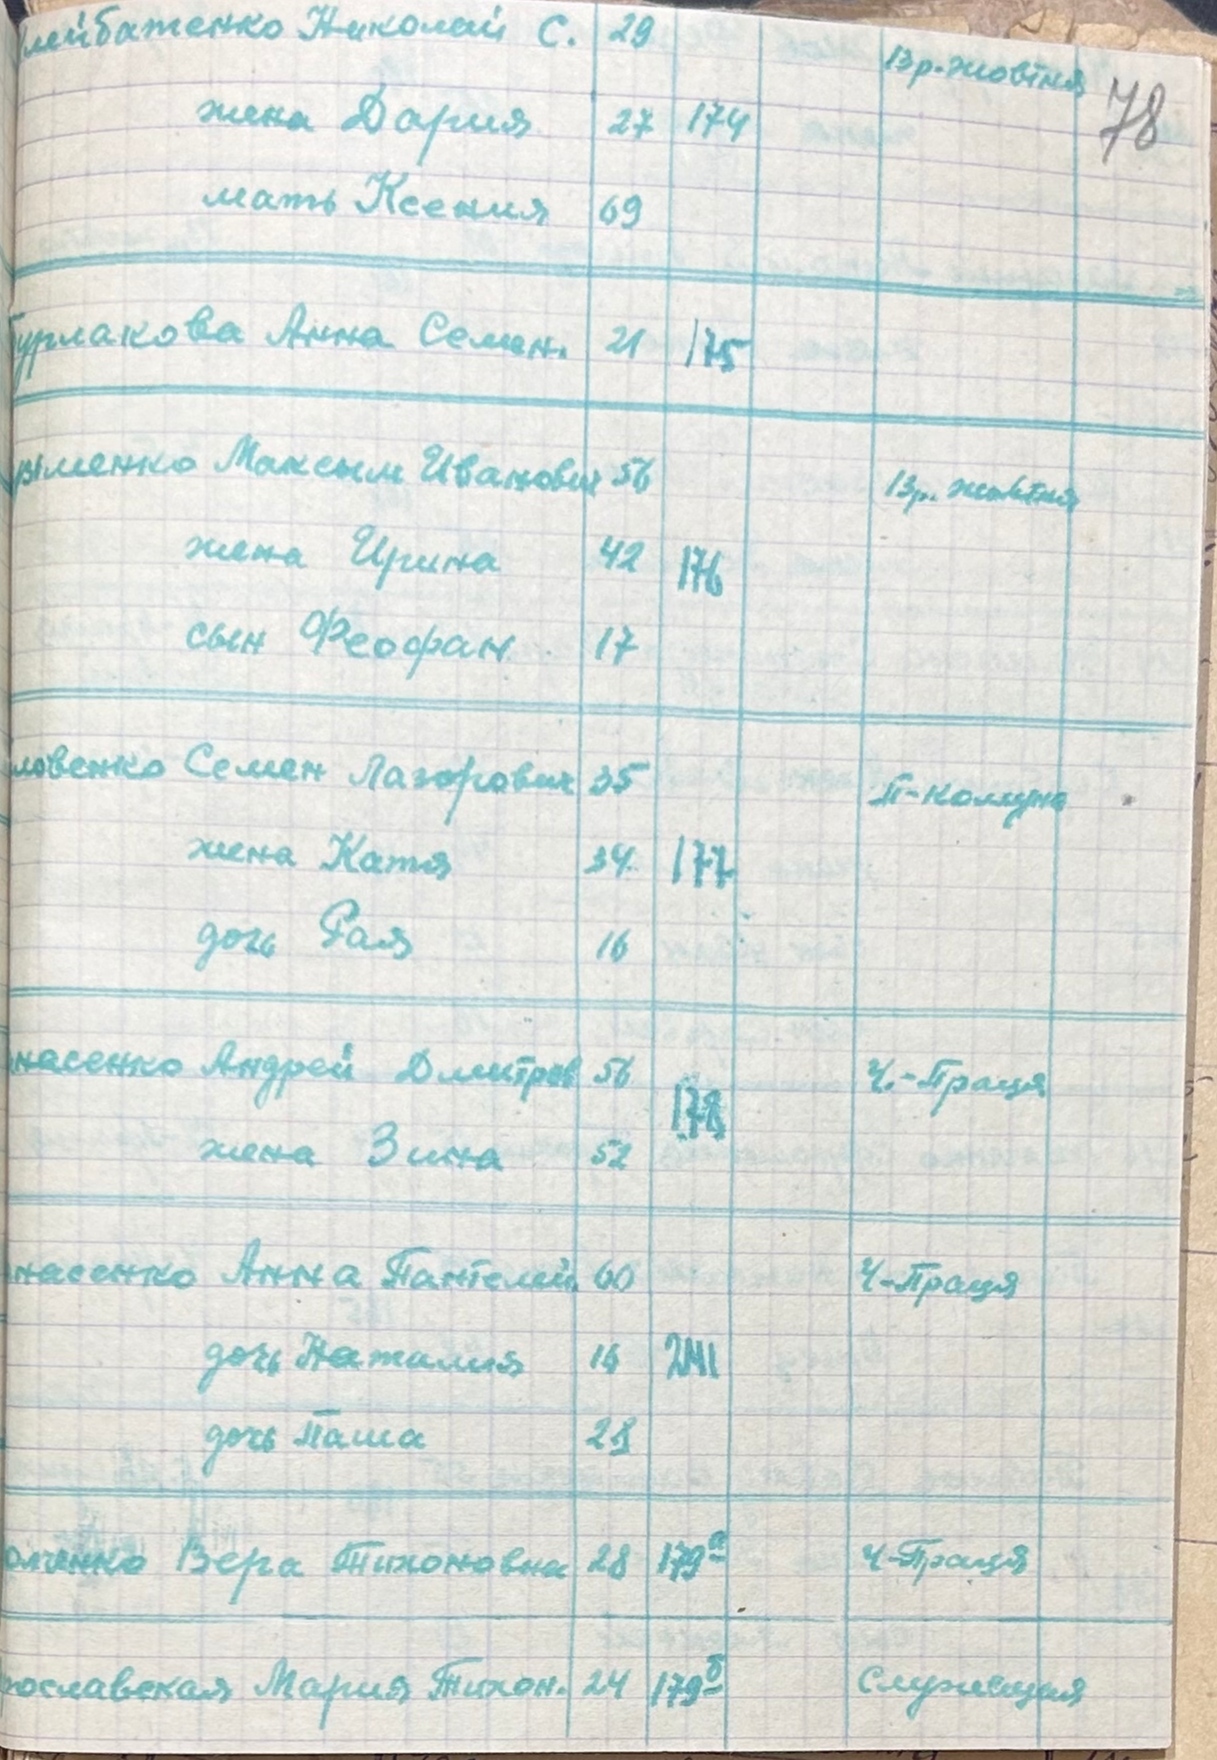 лейбатенко Николай С. 29 13р.-жовтня 78
жена Дария 27 174
мать Ксения 69
Бурлакова Анна Семен. 21 175
ыменко Максым Иванович 56 13р. жовтня
жена Ирина 42 176
сын Феофан 17
ловенко Семен Лазорович 35 П-Коммуна
жена Катя 34 177
дочь Рая 16
насенко Андрей Дмитров 56 Ч.-Праця
178
жена Зина 52
насенко Анна Пантелей. 60 Ч-Праця
дочь Наталия 16 241
дочь Паша 21
олченко Вера Тихоновна 28 179а Ч-Праця
рославская Мария Тихон. 24 179б Служащая